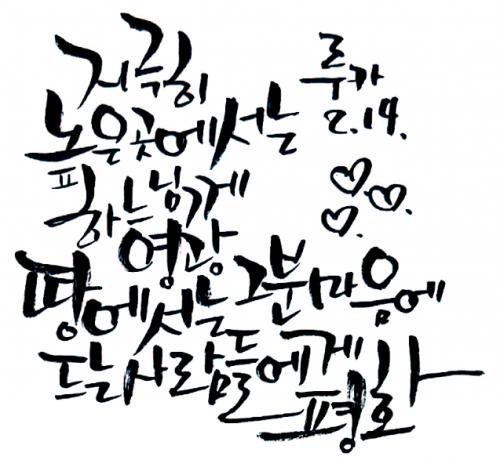 지극히
노은곳에서는
하느님께
영광
땅에서는 그분마음에
드는 사람들에게
평화
루카
2.14.